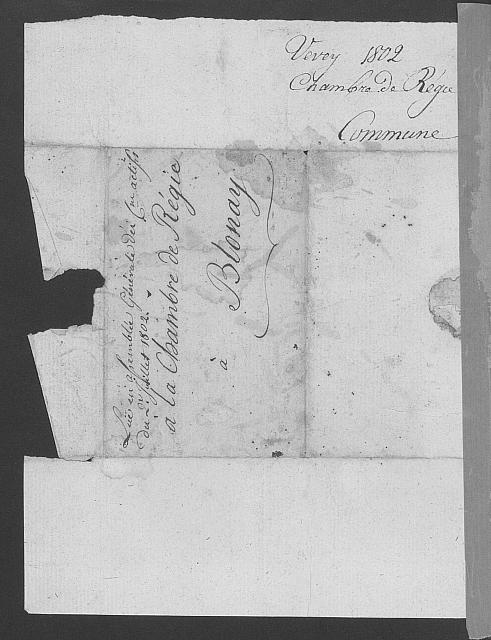 Vevey 1802
Chambre de Régie
Commune
Lue en assemblée Générale des Cns actifs
du 2e Juillet 1802.
a la Chambre de Régie
à
Blonay